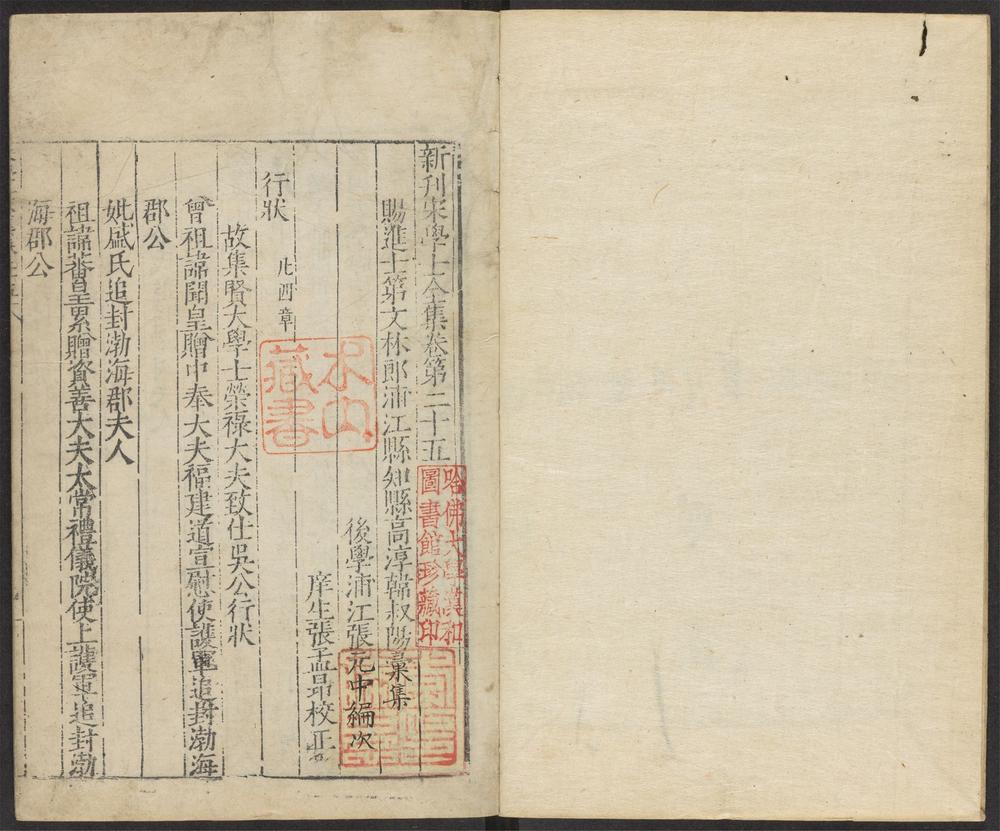 新刊宋學士全集卷第二十五
賜進士第文林郎浦江縣知縣高淳韓叔陽彙集
後學浦江張元中編次
庠生張孟昂校正
行狀 凡四章
故集賢大學士榮祿大夫致仕吳公行狀
曾祖諱聞皇贈中奉大夫福建道宣慰使護軍追封渤海
郡公
妣戚氏追封渤海郡夫人
祖諱蕃皇累贈資善大夫太常禮儀院使上護軍追封渤
海郡公
木山藏書
哈佛大學漢和圖書館珍藏印